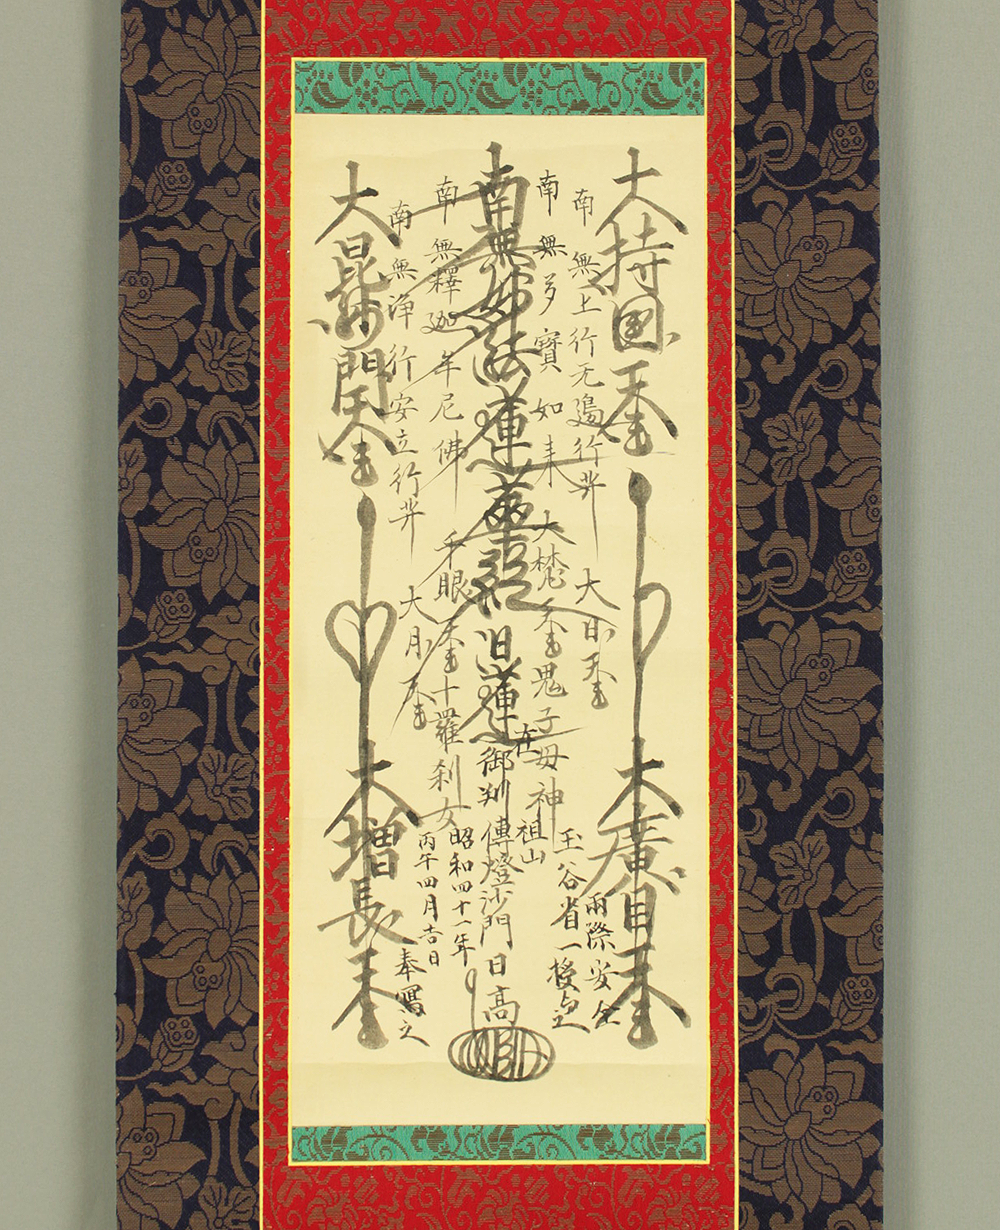 大持国天王
南無上行无邊行菩
南無多寳如来
南無妙法蓮華経
南無釋迦牟尼佛
南無浄行安立行菩
大毘沙門天王
大日天王
大梵天王
鬼子母神
日蓮
在
御判
千眼天王
十羅刹女
大月天王
大廣目天王
大増長天王
兩際安全
玉谷省一授与之
祖山
傳燈沙門日高
昭和四十一年
丙午四月吉日
奉寫之